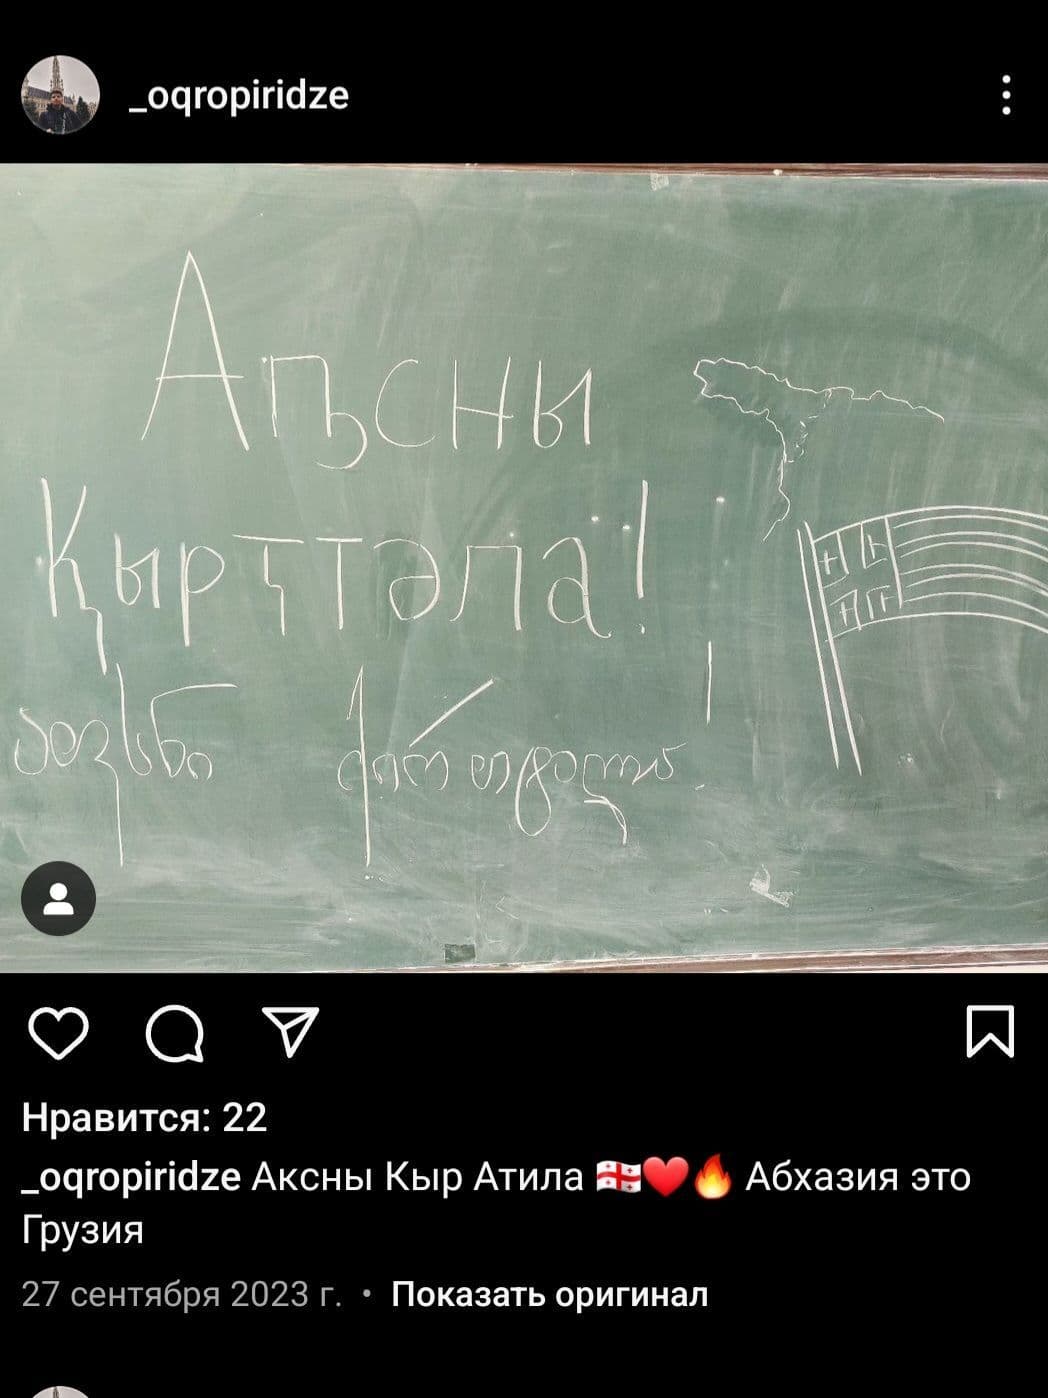 _oqropiridze
Аҧсны
Қырҭтәла!
Нравится: 22
_oqropiridze Аксны Кыр Атила 🇬🇪❤️🔥 Абхазия это
Грузия
27 сентября 2023 г. • Показать оригинал